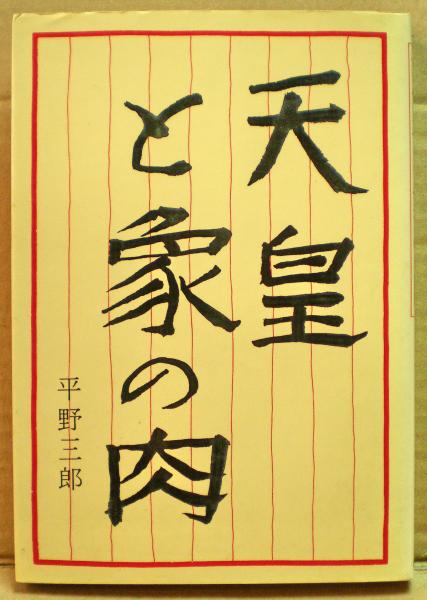 天皇
と象の肉
平野三郎